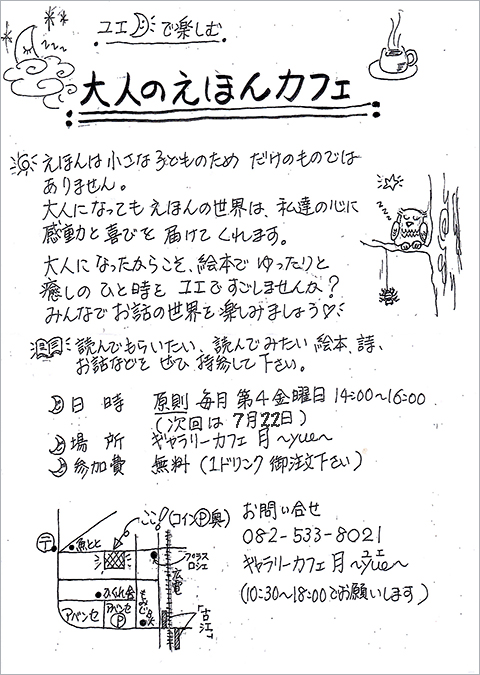 ユエで楽しむ
大人のえほんカフェ
えほんは小さな子どものため だけのものでは
ありません。
大人になっても えほんの世界は、私達の心に
感動と喜びを 届けて くれます。
大人になったからこそ、絵本で ゆったりと
癒しの ひと時を ユエですごしませんか?
みんなで お話の世界を楽しみましょう♡
読んでもらいたい、読んでみたい 絵本、詩、
お話などを ぜひ 持参して下さい。
日 時 原則 毎月 第4金曜日 14:00~16:00
(次回は 7月22日)
場 所 ギャラリーカフェ 月 ~yue~
参加費 無料 (1ドリンク 御注文下さい)
ここ!(コインⓅ奥)
〒
魚とと
プラス
ロシェ
広電
アバンセ
アバンセ
Ⓟ
「古江」
お問い合せ
082-533-8021
ギャラリーカフェ 月 ~yue~
ユエ
(10:30~18:00でお願いします)